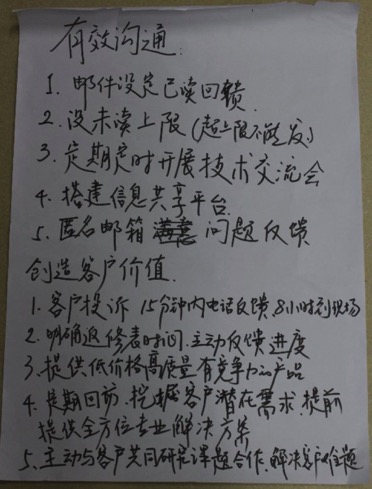 有效沟通
1. 邮件设定已读回馈
2. 没未读上限(超上限不能发)
3. 定期定时开展技术交流会
4. 搭建信息共享平台
5. 匿名邮箱 问题反馈
创造客户价值
1. 客户投诉 15分钟内电话反馈 8小时到现场
2. 明确返修表时间.主动反馈进度
3. 提供低价格高质量有竞争力产品
4. 定期回访.挖掘客户潜在需求.提前
提供全方位专业解决方案
5. 主动与客户共同研究课题合作.解决客户难题